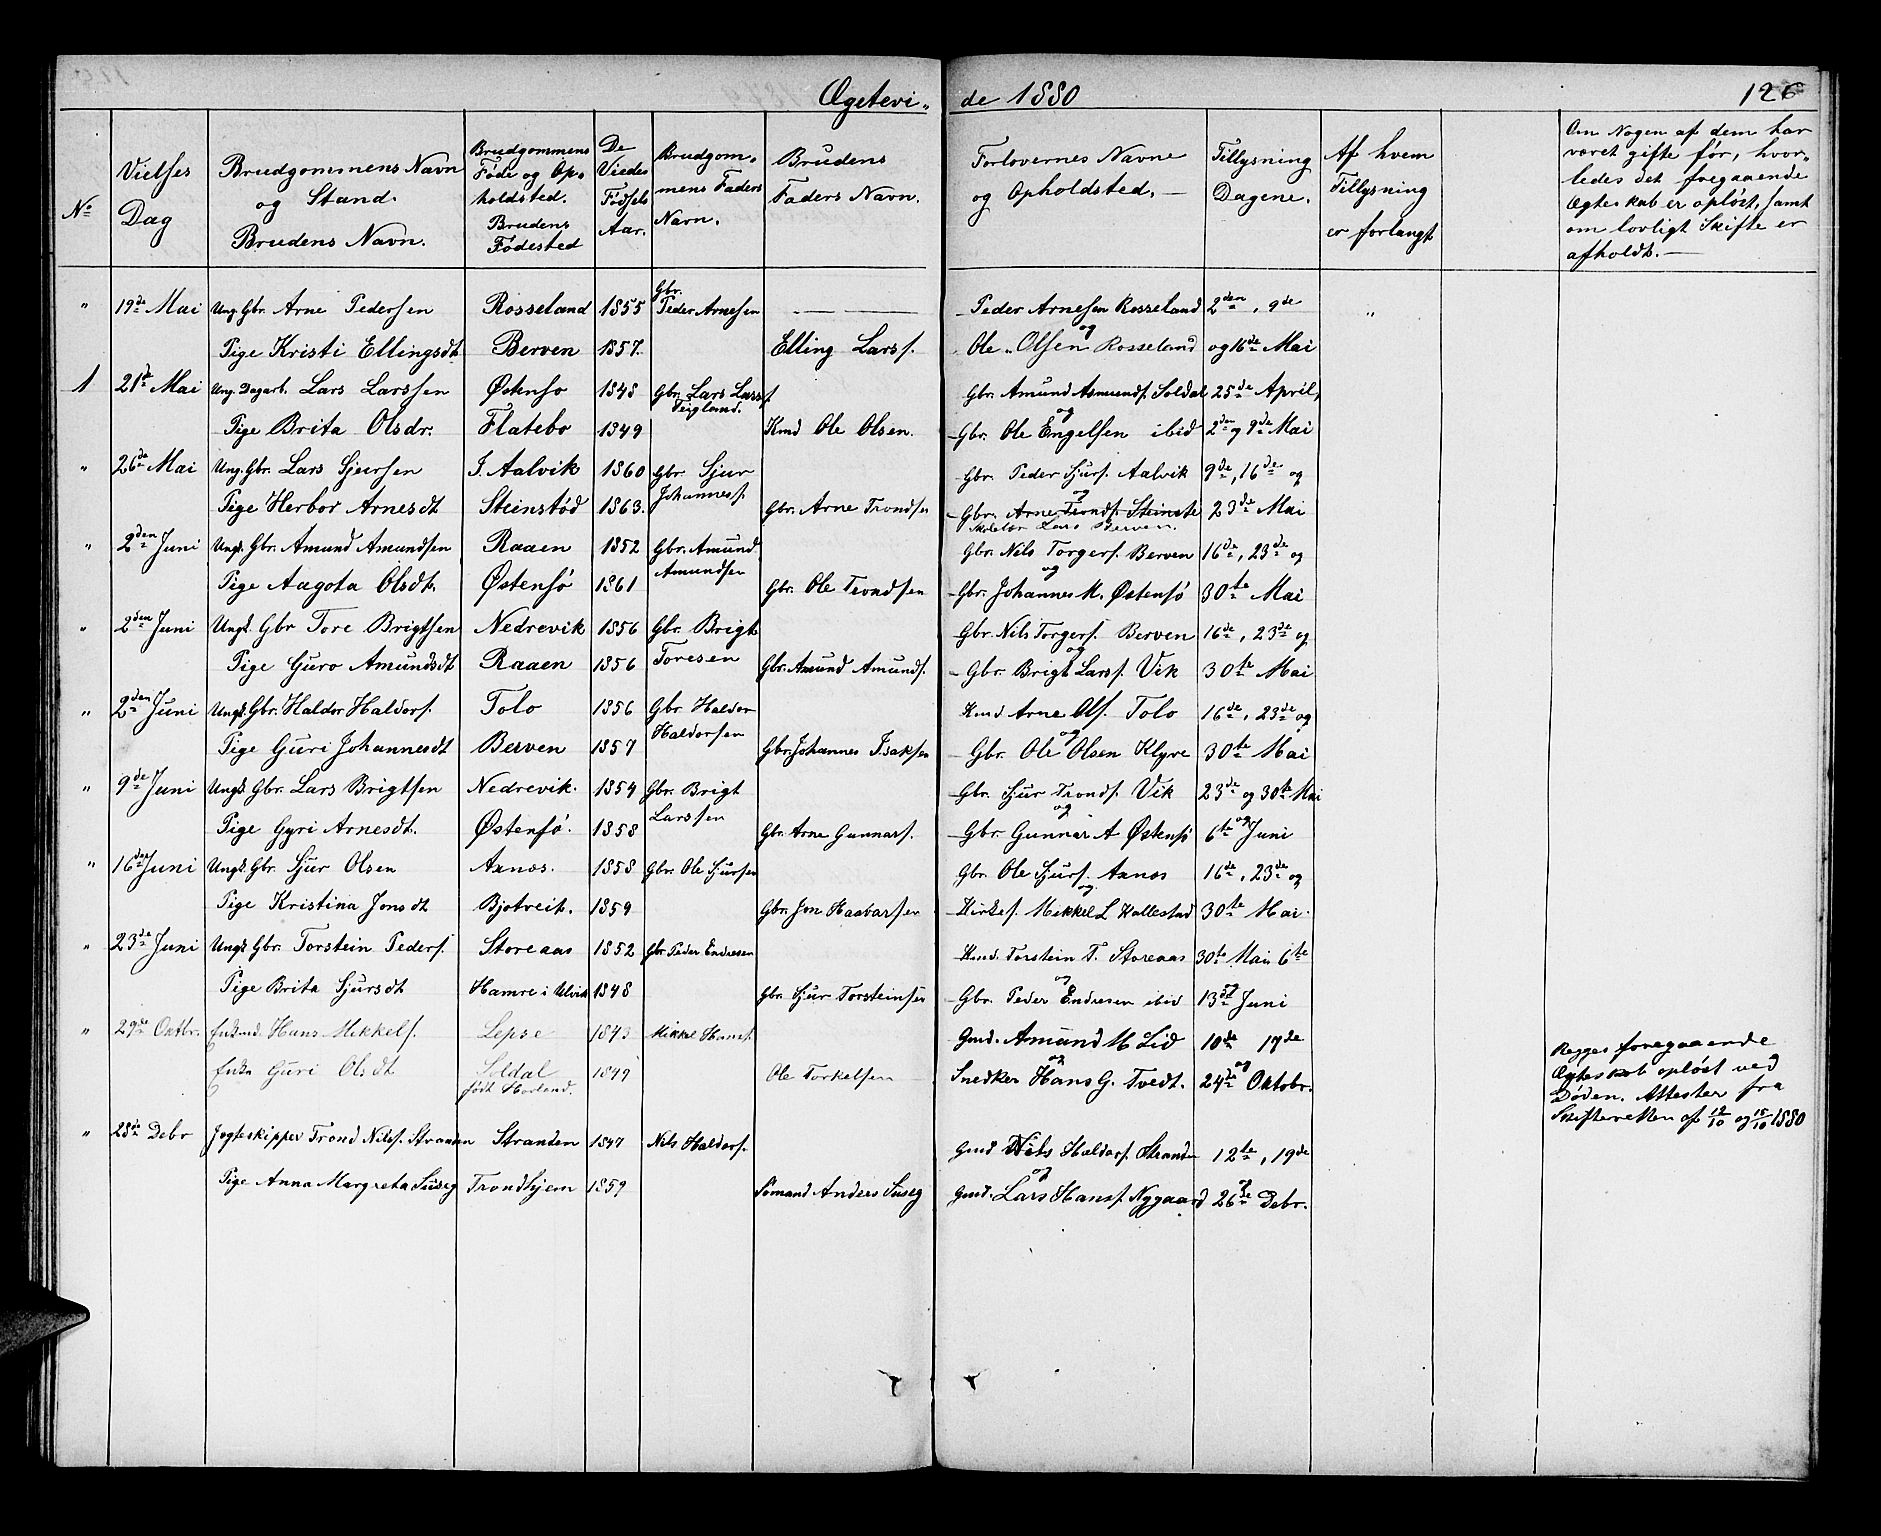 Ægtevi„ de 1880
126
No
Vielses Dag
Brudgommens Navn og Stand. Brudens Navn.
Brudgommens Føde og Opholdsted. Brudens Fødested
De Viedes Fødsels Aar.
Brudgommens Faders Navn.
Brudens Faders Navn.
Forlovernes Navne og Opholdsted. —
Tillysning Dagene.
Af hvem Tillysning er forlangt
Om Nogen af dem har været gifte før, hvorledes det foregaaende Ægteskab er opløst, samt om lovligt Skifte er afholdt. —
" 19de Mai Ung. Gbr. Arne Pedersen Rosseland 1855 Gbr. Peder Arnesen — — Peder Arnesen Rosseland 2den, 9de "
Pige Kristi Ellingsdt. Berven 1857. Elling Larss. og Ole Olsen Rosseland og 16de Mai
1 21de Mai Ung. Dagarb. Lars Larssen Østensø 1848 Gbr. Lars Larss. Teigland. Gbr. Amund Asmunds. Soldal 25de April,
Pige Brita Olsdr. Flatebø 1849 Kmd Ole Olsen. og Gbr. Ole Engelsen ibid 2den og 9de Mai
" 26de Mai Ung. Gbr. Lars Sjursen I. Aalvik 1860 Gbr. Sjur Johanness. Gbr. Peder Sjurs. Aalvik 9de, 16de og
Pige Herbor Arnesdt Steinstød 1863. Gbr. Arne Trondsen og Gbr. Arne Tronds. Steinstø 23de Mai
Skolelær Lars Berven.
" 2den Juni Ungk. Gbr. Amund Amundsen Raaen 1852 Gbr. Amund Amundsen Gbr. Nils Torgers. Berven 16de, 23de og
Pige Aagota Olsdt. Østensø 1861 Gbr. Ole Trondsen og Gbr. Johannes M. Østensø 30te Mai
" 2den Juni Ungk. Gbr Tore Brigtsen Nedrevik 1856 Gbr. Brigt Toresen Gbr. Nils Torgers. Berven 16de, 23de og
Pige Guro Amundsdt Raaen 1856 Gbr. Amund Amunds. og Gbr. Brigt Larss. Vik 30te Mai
" 2den Juni Ungk. Gbr. Haldor Haldors. Tolo 1856 Gbr Haldor Haldorsen Kmd Arne Ols. Tolo 16de, 23de og
Pige Guri Johannesdt Berven 1857 Gbr. Johannes Isaksen og Gbr. Ole Olsen Klyve 30te Mai
" 9de Juni Ungk. Gbr. Lars Brigtsen Nedrevik. 1854 Gbr. Brigt Larssen Gbr. Sjur Tronds. Vik 23de og 30te Mai
Pige Gyri Arnesdt. Østensø. 1858 Gbr. Arne Gunnars. og Gbr Gunnar A Østensø og 6te Juni
" 16de Juni Ungk. Gbr. Sjur Olsen Axnos. 1858 Gbr. Ole Sjursen Gbr. Ole Sjurs. Axnos 16de, 23de og
Pige Kristina Jonsdt Bjotveit. 1859 Gbr. Jon Haavarsen og Kirkes. Mikkel L Kallestad 30te Mai.
" 23de Juni Ungk. Gbr. Torstein Peders. Storeaas 1852 Gbr. Peder Endresen Kmd. Torstein T. Storeaas 30te Mai 6te
Pige Brita Sjursdt Hamre i Ulvik 1848 Gbr Sjur Torsteinsen og Gbr. Peder Endresen ibid og 13de Juni
" 29de Oktbr. Enkmd. Hans Mikkels. Lepsø 1843 Mikkel Hanss. Gmd. Amund M Lid 10de 17de
Enke Guri Olsdt Soldal født Horland. 1849 Ole Torkelsen og Snedker Hans G. Tvedt. og 24de Oktobr.
Begges foregaaende
Ægteskab opløst ved
Døden. Attester fra
Skifteretten af 12/10 og 15/10 1880
" 28de Debr Jægteskipper Trond Nilss. Stranden Stranden 1847 Nils Haldors. Gmd Nils Haldors. Stranden 12te, 19de
Pige Anna Margreta Suseg Trondhjem 1859 Sømand Anders Suseg og Gmd. Lars Hanss. Nygaard og 26de Debr.